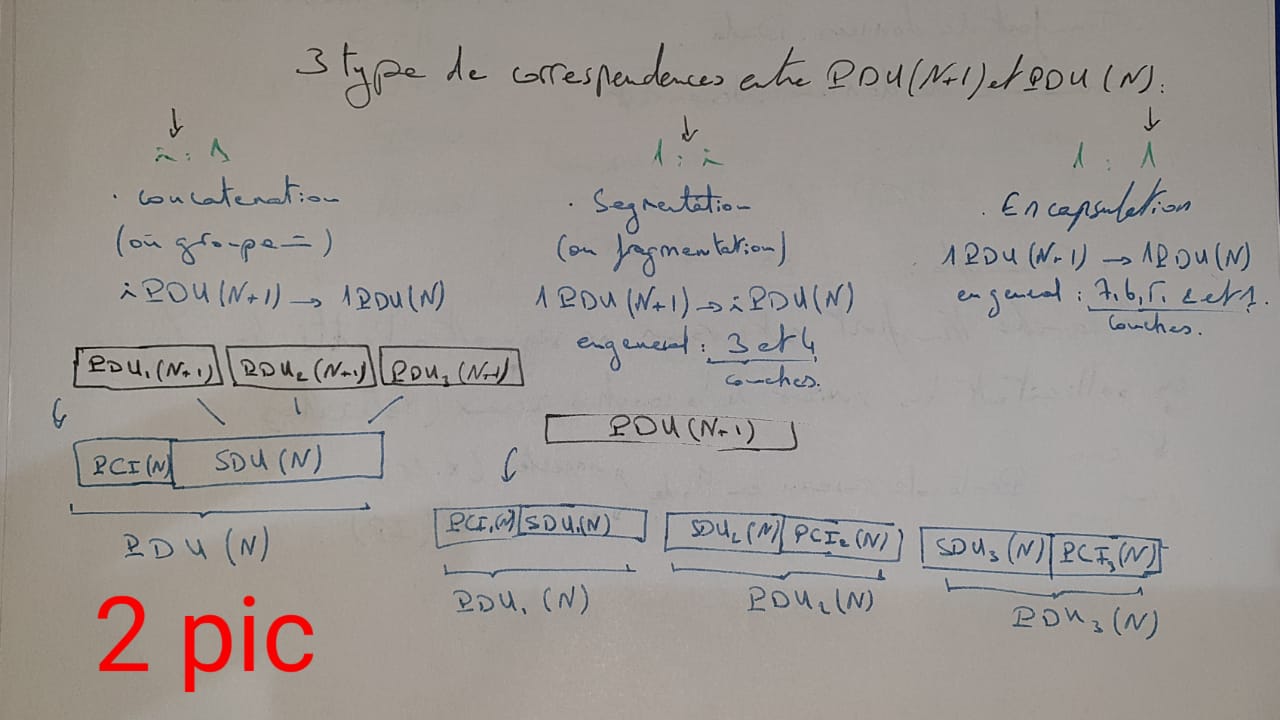 3 type de correspendences entre PDU(N+1) et PDU(N):
i : 1
· Concatenation
(où groupe=)
i PDU(N+1) → 1PDU(N)
PDU₁(N+1) PDU₂(N+1) PDU₃(N+1)
PCI(N) SDU(N)
PDU(N)
1 : i
· Segmentation
(ou fragmentation)
1 PDU(N+1) → i PDU(N)
en general : 3 et 4
couches.
PDU(N+1)
PCI₁(N) SDU₁(N) SDU₂(N) PCI₂(N) SDU₃(N) PCI₃(N)
PDU₁(N) PDU₂(N) PDU₃(N)
1 : 1
· Encapsulation
1PDU(N+1) → 1PDU(N)
en general : 7, 6, 5, 2 et 1.
couches.
2 pic